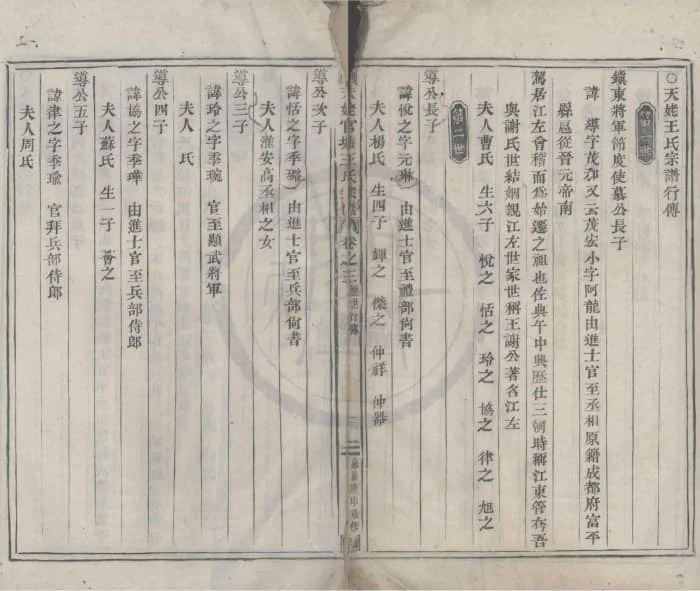 ○天姥王氏宗譜行傳
第一世
鎭東將軍節度使墓公長子
諱導字茂和又云茂宏小字阿龍由進士官至丞相原籍成都府富平
縣邑從晉元帝南
駕居江左會稽而爲始遷之祖也佐典午中興歷仕三朝時稱江東管夷吾
與謝氏世結姻親江左世家世稱王謝公著名江左
夫人曹氏 生六子 悅之 恬之 玲之 協之 律之 旭之
第二世
導公長子
諱悅之字元琳 由進士官至禮部尙書
夫人楊氏 生四子 輝之 傑之 仲祥 仲器
天姥官塘王氏宗譜 卷之三 歷世行傳
二
導公次子
諱恬之字季璐 由進士官至兵部尙書
夫人淮安高丞相之女
導公三子
諱玲之字季琬 官至顯武將軍
夫人 氏
導公四子
諱協之字季瑋 由進士官至兵部侍郎
夫人蘇氏 生一子 薈之
導公五子
諱律之字季瑜 官拜兵部侍郎
夫人周氏